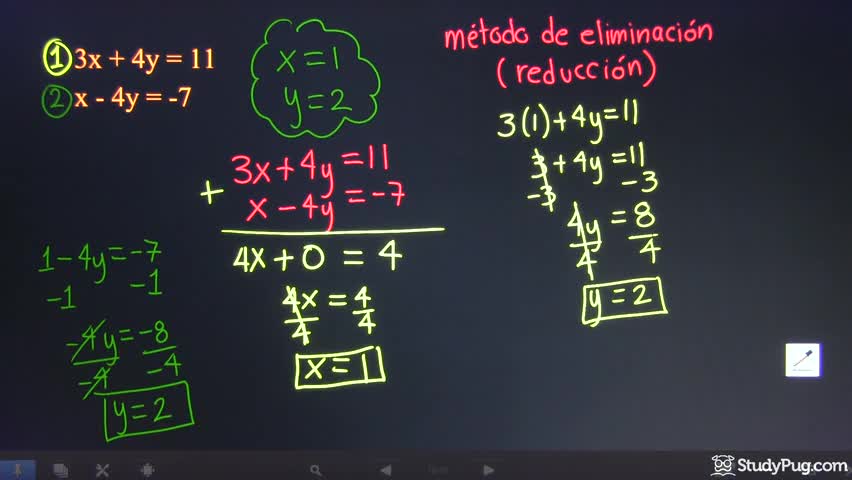 ① 3x + 4y = 11
② x - 4y = -7
x = 1
y = 2
método de eliminación
(reducción)
3x + 4y = 11
+ x - 4y = -7
4x + 0 = 4
4x = 4
4 4
x = 1
3(1) + 4y = 11
3 + 4y = 11
-3 -3
4y = 8
4 4
y = 2
1 - 4y = -7
-1 -1
-4y = -8
-4 -4
y = 2
StudyPug.com